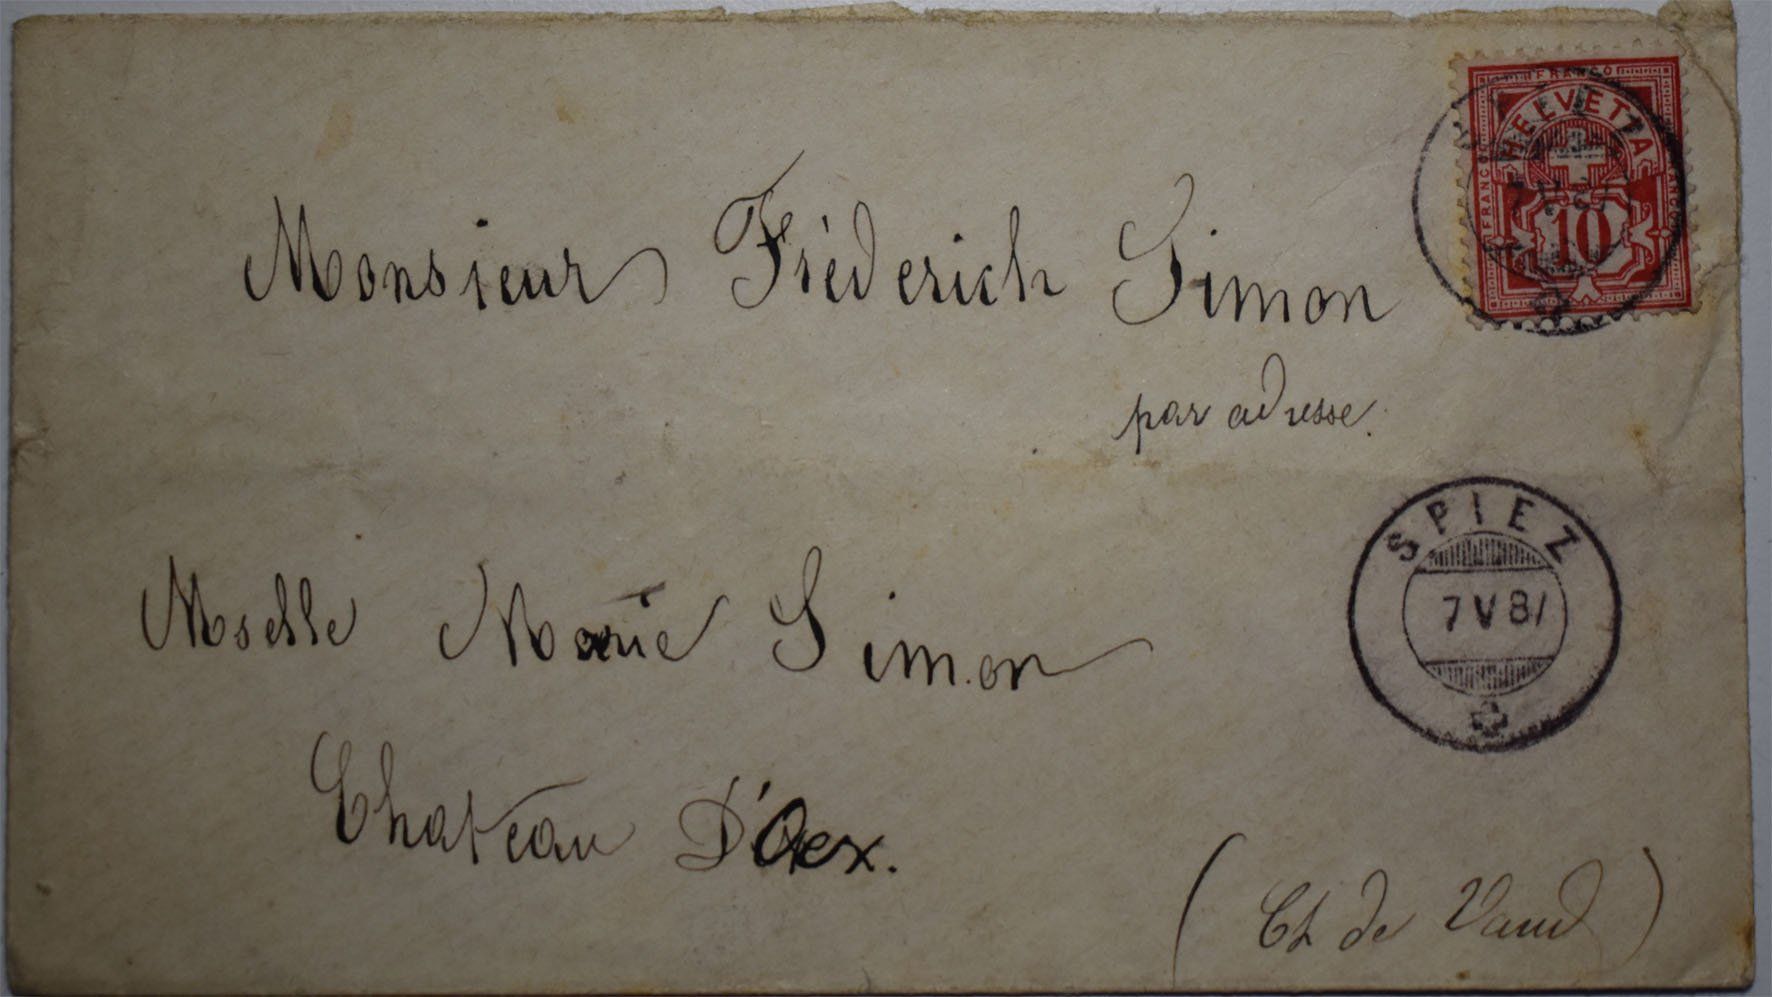 FRANCO
HELVETIA
FRANCO
FRANCO
10
Monsieur Fréderich Simon
par adresse.
SPIEZ
7 V 87
Mselle Marie Simon
Chateau D'Oex.
(Ct de Vaud)